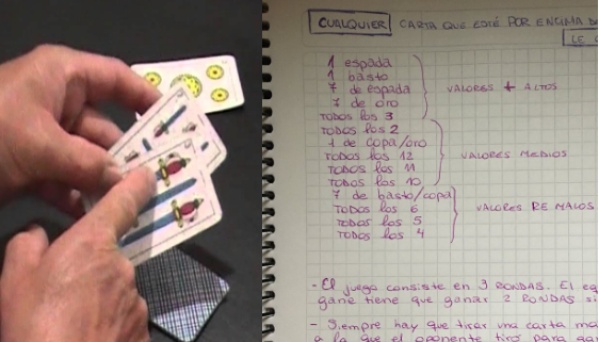 CUALQUIER CARTA QUE ESTÉ POR ENCIMA
LE
1 espada
1 basto
7 de espada
7 de oro
TODOS los 3
VALORES + ALTOS
TODOS los 2
1 de copa/oro
TODOS los 12
TODOS los 11
TODOS los 10
VALORES MEDIOS
7 de basto/copa
TODOS los 6
TODOS los 5
TODOS los 4
VALORES RE MALOS
- El juego consiste en 3 RONDAS. El
gane tiene que ganar 2 RONDAS
- Siempre hay que tirar una carta
a la que el oponente tiró para